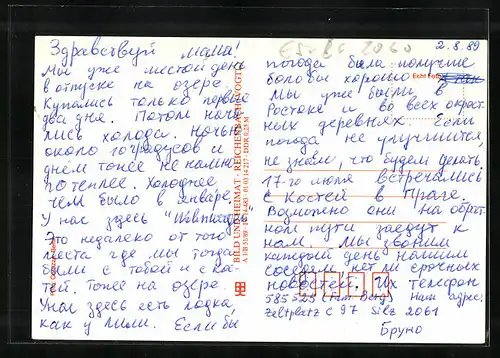 2.8.89
Здравствуй мама!
Мы уже шестой день
в отпуске на озере.
Купались только первые
два дня. Потом нача-
лись холода. Ночью
около 10 градусов и
днём тоже не намно
го теплее. Холоднее
чем было в январе.
У нас здесь
Это недалеко от того
места где мы тогда
были с тобой и с Ка-
тей. Тоже на озере.
У нас здесь есть лодка,
как у Лили. Если бы
погода была получше
было бы хорошо
Мы уже были в
Ростоке и во всех окрест
ных деревнях. Если
погода не улучшится,
не знаем, что будем делать.
17-го июля встречались
с Костей в Праге.
Возможно они на обрат
ном пути заедут к
нам. Мы звоним
каждый день нашим
соседям, нет ли срочных
новостей. Их телефон
585525 Наш адрес:
Zeltplatz C 97 Silz 2061
Бруно
Echt Foto
BILD UND HEIMAT · REICHENBACH (VOGTL)